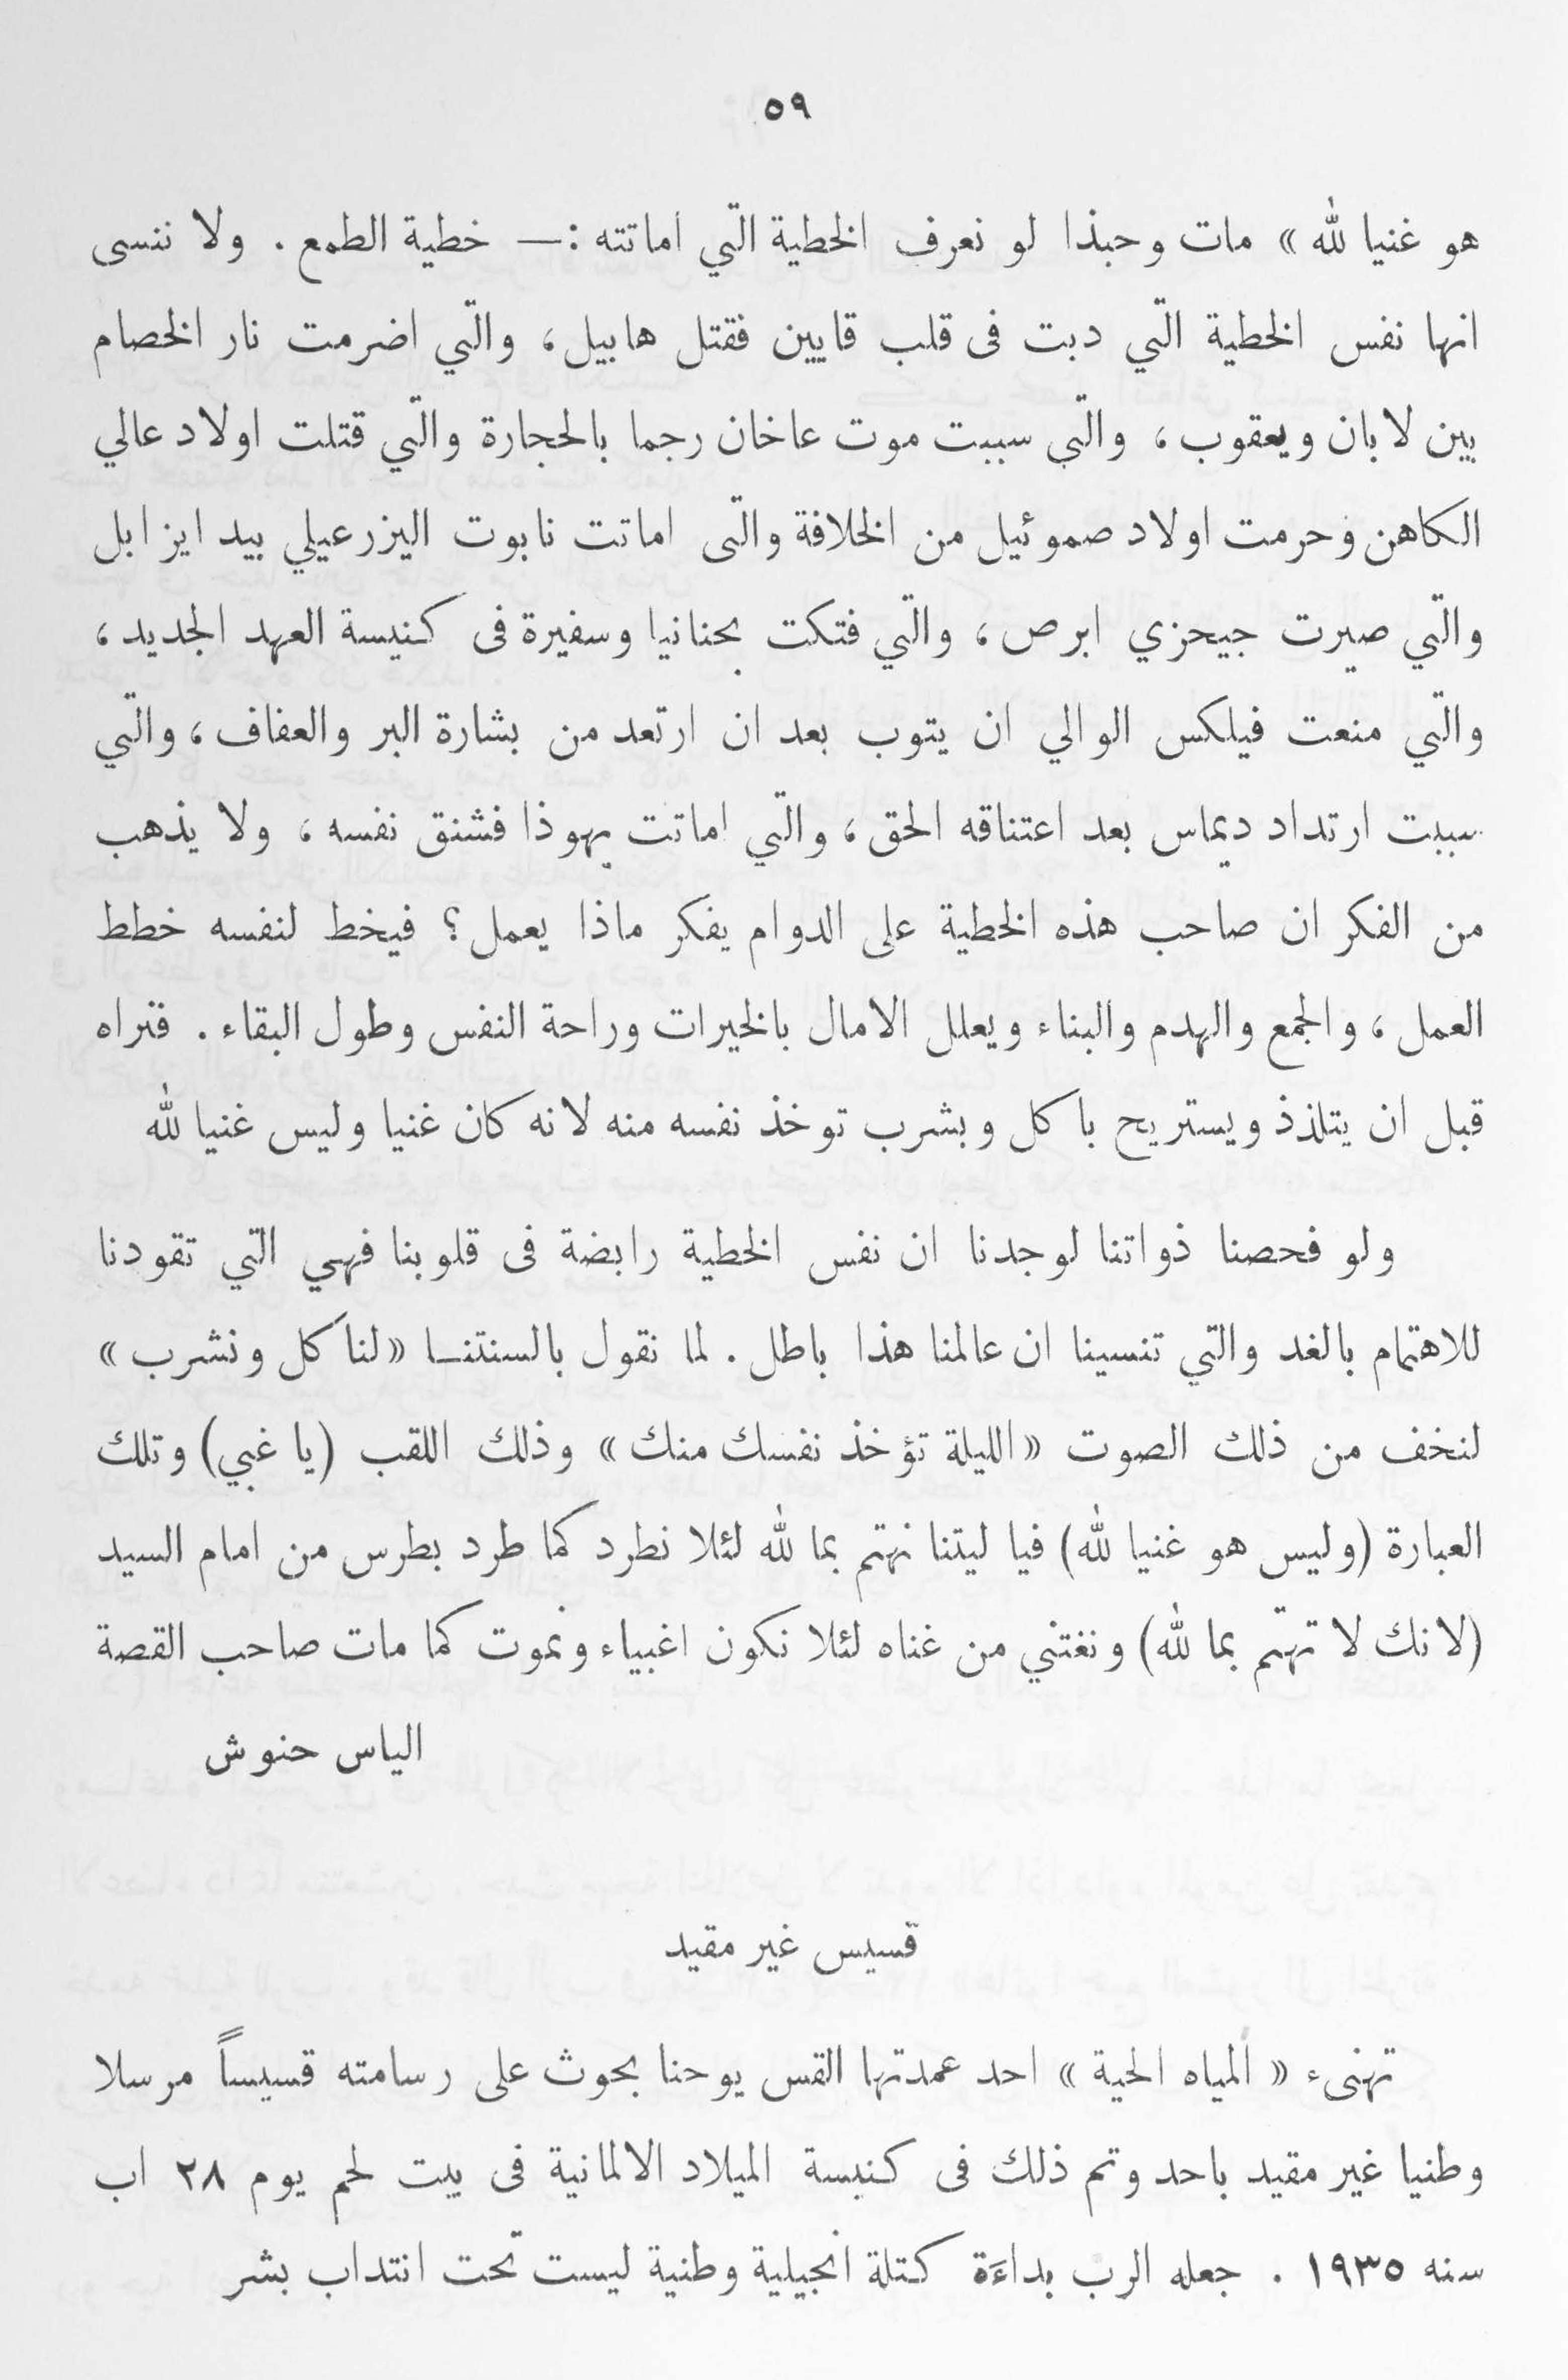 ٥٩
هو غنيا لله » مات وحبذا لو نعرف الخطية التي اماتته :— خطية الطمع . ولا ننسى
انها نفس الخطية التي دبت فى قلب قايين فقتل هابيل ، والتي اضرمت نار الخصام
بين لابان ويعقوب ، والتي سببت موت عاخان رجما بالحجارة والتي قتلت اولاد عالي
الكاهن وحرمت اولاد صموئيل من الخلافة والتى اماتت نابوت اليزرعيلي بيد ايزابل
والتي صيرت جيحزي ابرص ، والتي فتكت بحنانيا وسفيرة فى كنيسة العهد الجديد ،
والتي منعت فيلكس الوالي ان يتوب بعد ان ارتعد من بشارة البر والعفاف ، والتي
سببت ارتداد ديماس بعد اعتناقه الحق ، والتي اماتت يهوذا فشنق نفسه ، ولا يذهب
من الفكر ان صاحب هذه الخطية على الدوام يفكر ماذا يعمل ؟ فيخط لنفسه خطط
العمل ، والجمع والهدم والبناء ويعلل الامال بالخيرات وراحة النفس وطول البقاء . فتراه
قبل ان يتلذذ ويستريح باكل وبشرب توخذ نفسه منه لانه كان غنيا وليس غنيا لله
ولو فحصنا ذواتنا لوجدنا ان نفس الخطية رابضة فى قلوبنا فهي التي تقودنا
للاهتمام بالغد والتي تنسينا ان عالمنا هذا باطل . لما نقول بالسنتنا « لناكل ونشرب »
لنخف من ذلك الصوت « الليلة تؤخذ نفسك منك » وذلك اللقب (يا غبي) وتلك
العبارة (وليس هو غنيا لله) فيا ليتنا نهتم بما لله لئلا نطرد كما طرد بطرس من امام السيد
(لانك لا تهتم بما لله) ونغتني من غناه لئلا نكون اغبياء ونموت كما مات صاحب القصة
الياس حنوش
قسيس غير مقيد
تهنىء « المياه الحية » احد عمدتها القس يوحنا بحوث على رسامته قسيساً مرسلا
وطنيا غير مقيد باحد وتم ذلك فى كنيسة الميلاد الالمانية فى بيت لحم يوم ٢٨ اب
سنه ١٩٣٥ . جعله الرب بداءَة كتلة انجيلية وطنية ليست تحت انتداب بشر